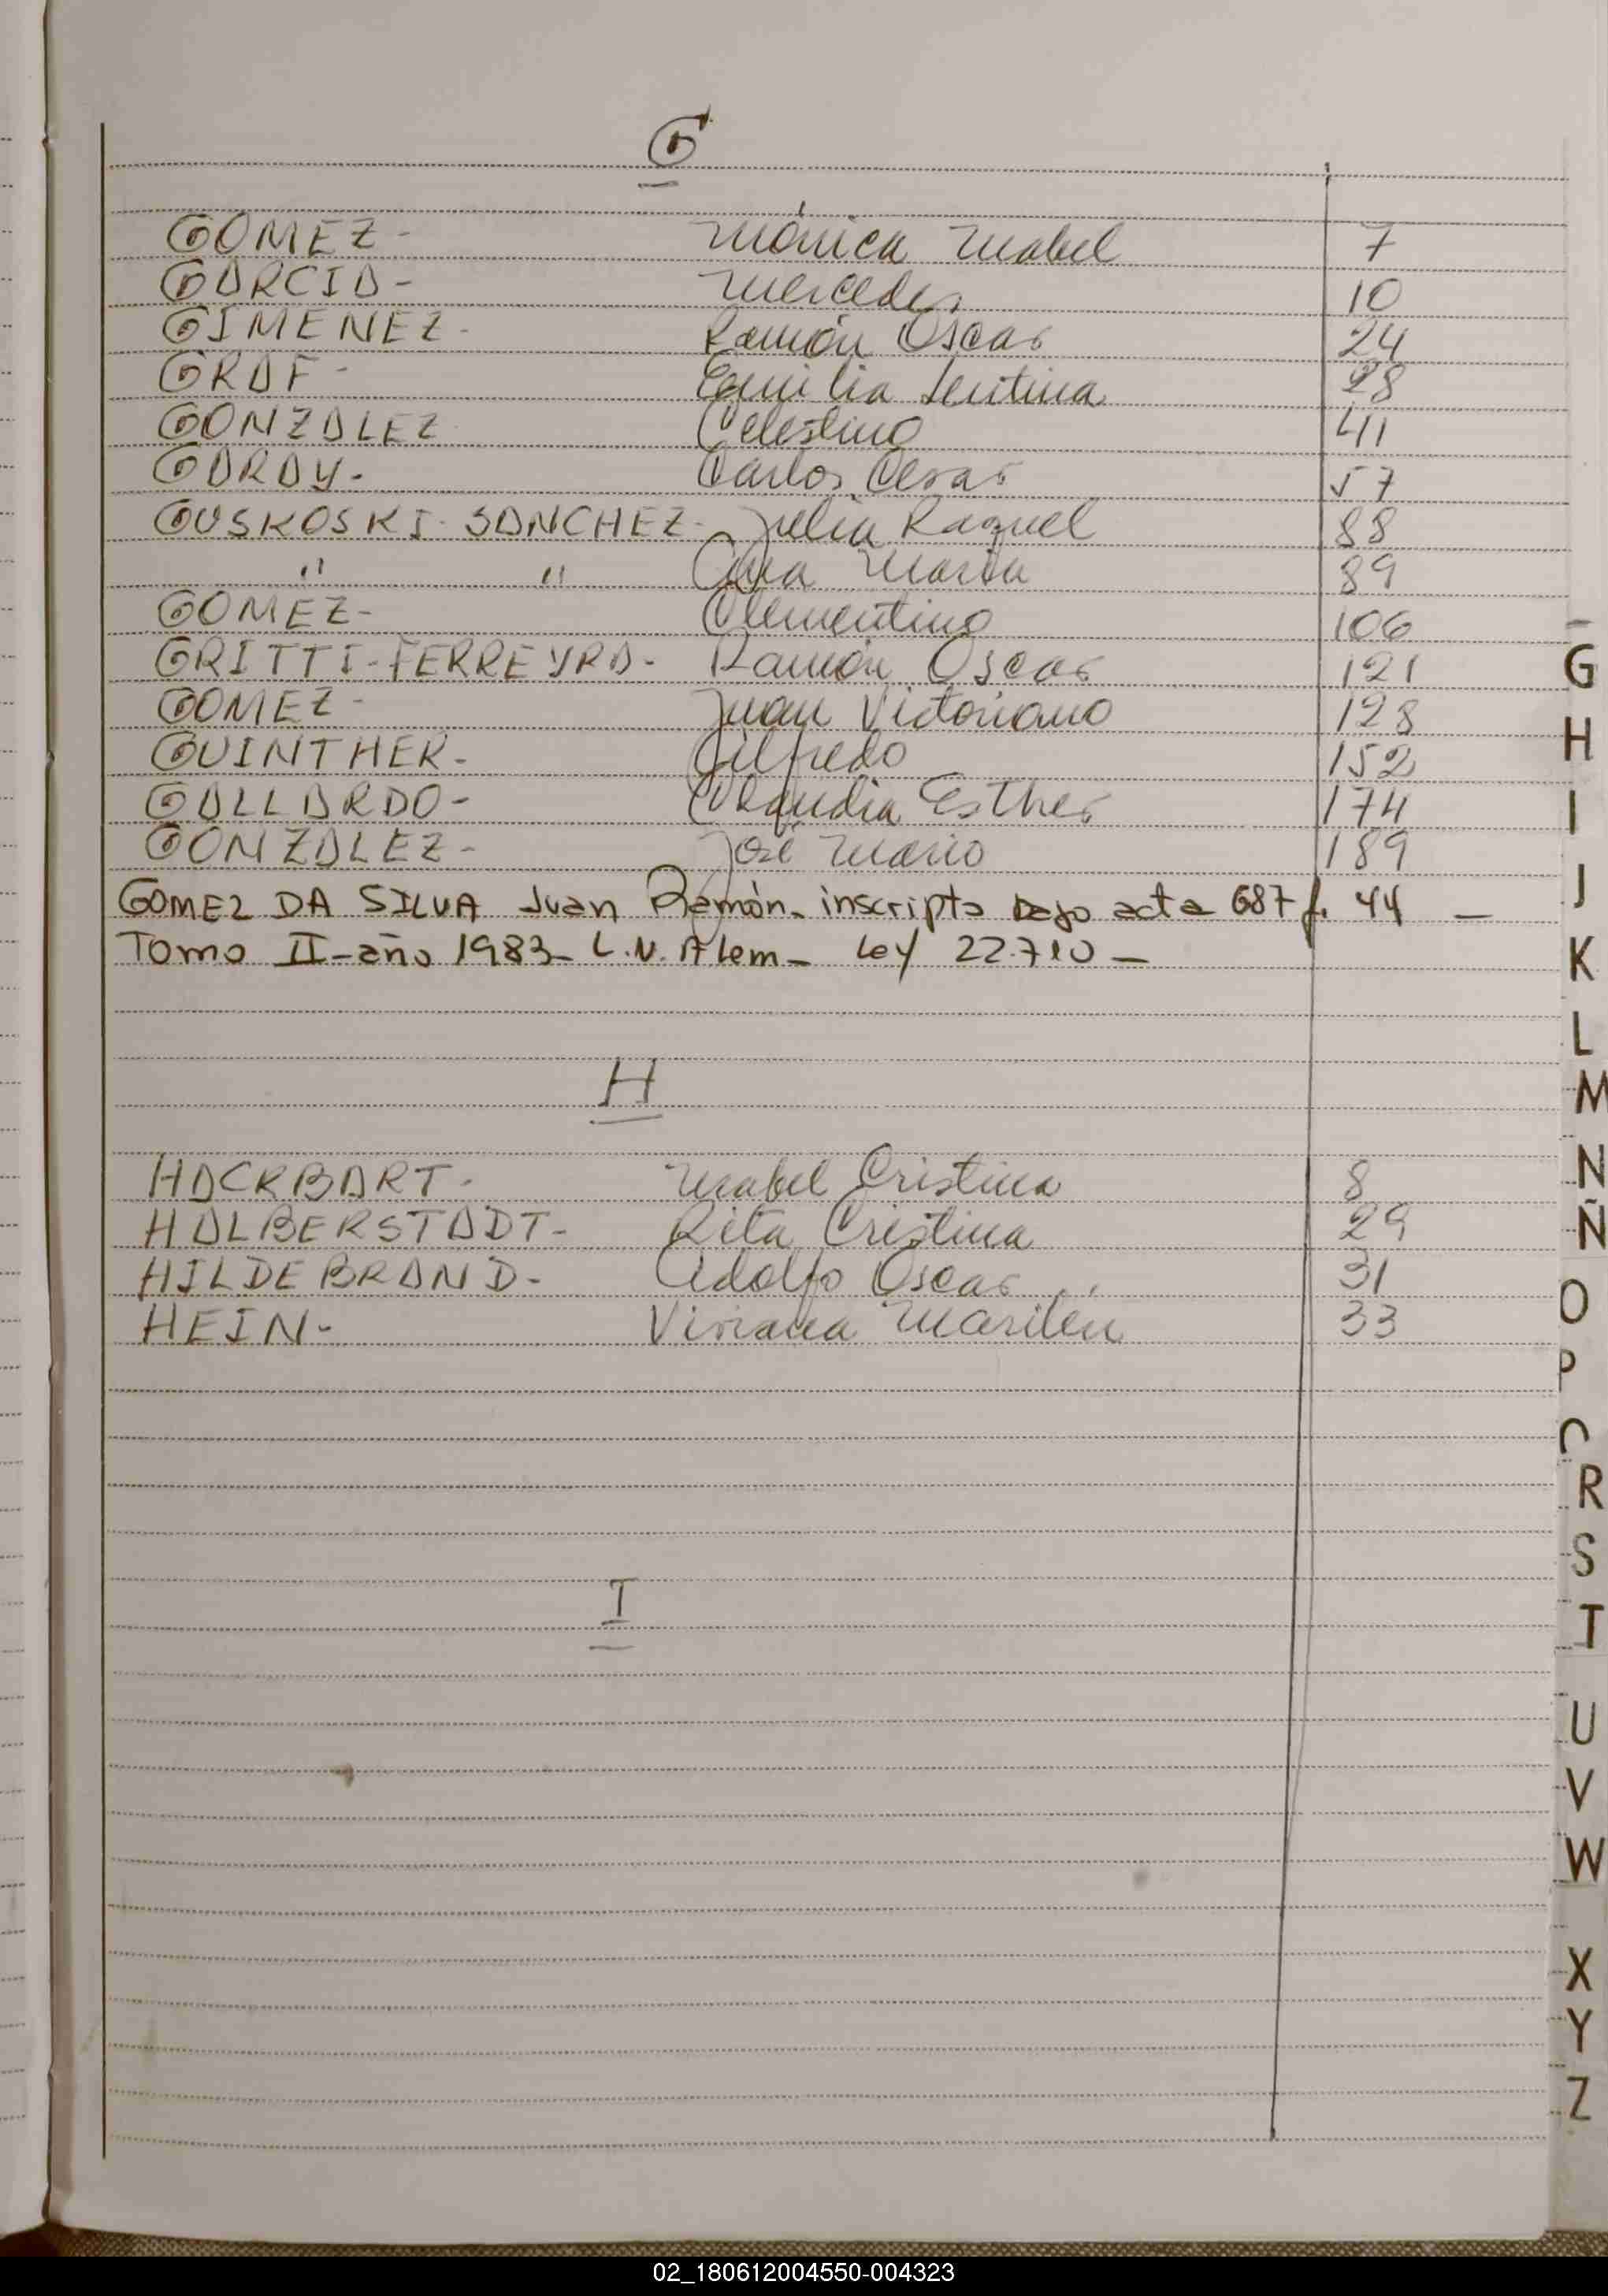 G
GOMEZ- Mónica Mabel 7
GARCIA- Mercedes 10
GIMENEZ- Ramón Oscar 24
GRAF- Emilia 28
GONZALEZ Celestino 41
GARAY- Carlos Cesar 57
GUSKOSKI-SANCHEZ- Julia Raquel 88
" " Ana María 89
GOMEZ- Clementino 106
GRITTI-FERREYRA- Ramón Oscar 121
GOMEZ- Juan Victoriano 128
GUINTHER- Gilfredo 152
GALLARDO- Claudia Esther 174
GONZALEZ- José Mario 189
GOMEZ DA SILVA Juan Ramón- inscripto bajo acta 687 f. 44 —
Tomo II-año 1983- L.N. Alem- Ley 22.710 —
H
HACKBART- Mabel Cristina 8
HALBERSTADT- Rita Cristina 29
HILDEBRAND- Adolfo Oscar 31
HEIN- Viviana Marilen 33
I
G
H
I
J
K
L
M
N
Ñ
O
P
R
S
T
U
V
W
X
Y
Z
02_180612004550-004323